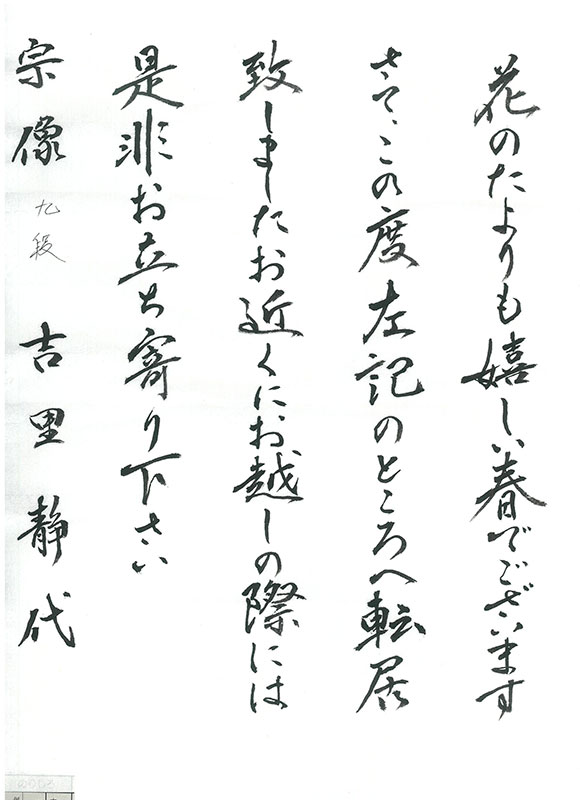 花のたよりも嬉しい春でございます
さて、この度左記のところへ転居
致しましたお近くにお越しの際には
是非お立ち寄り下さい
宗像 九段 吉里静代